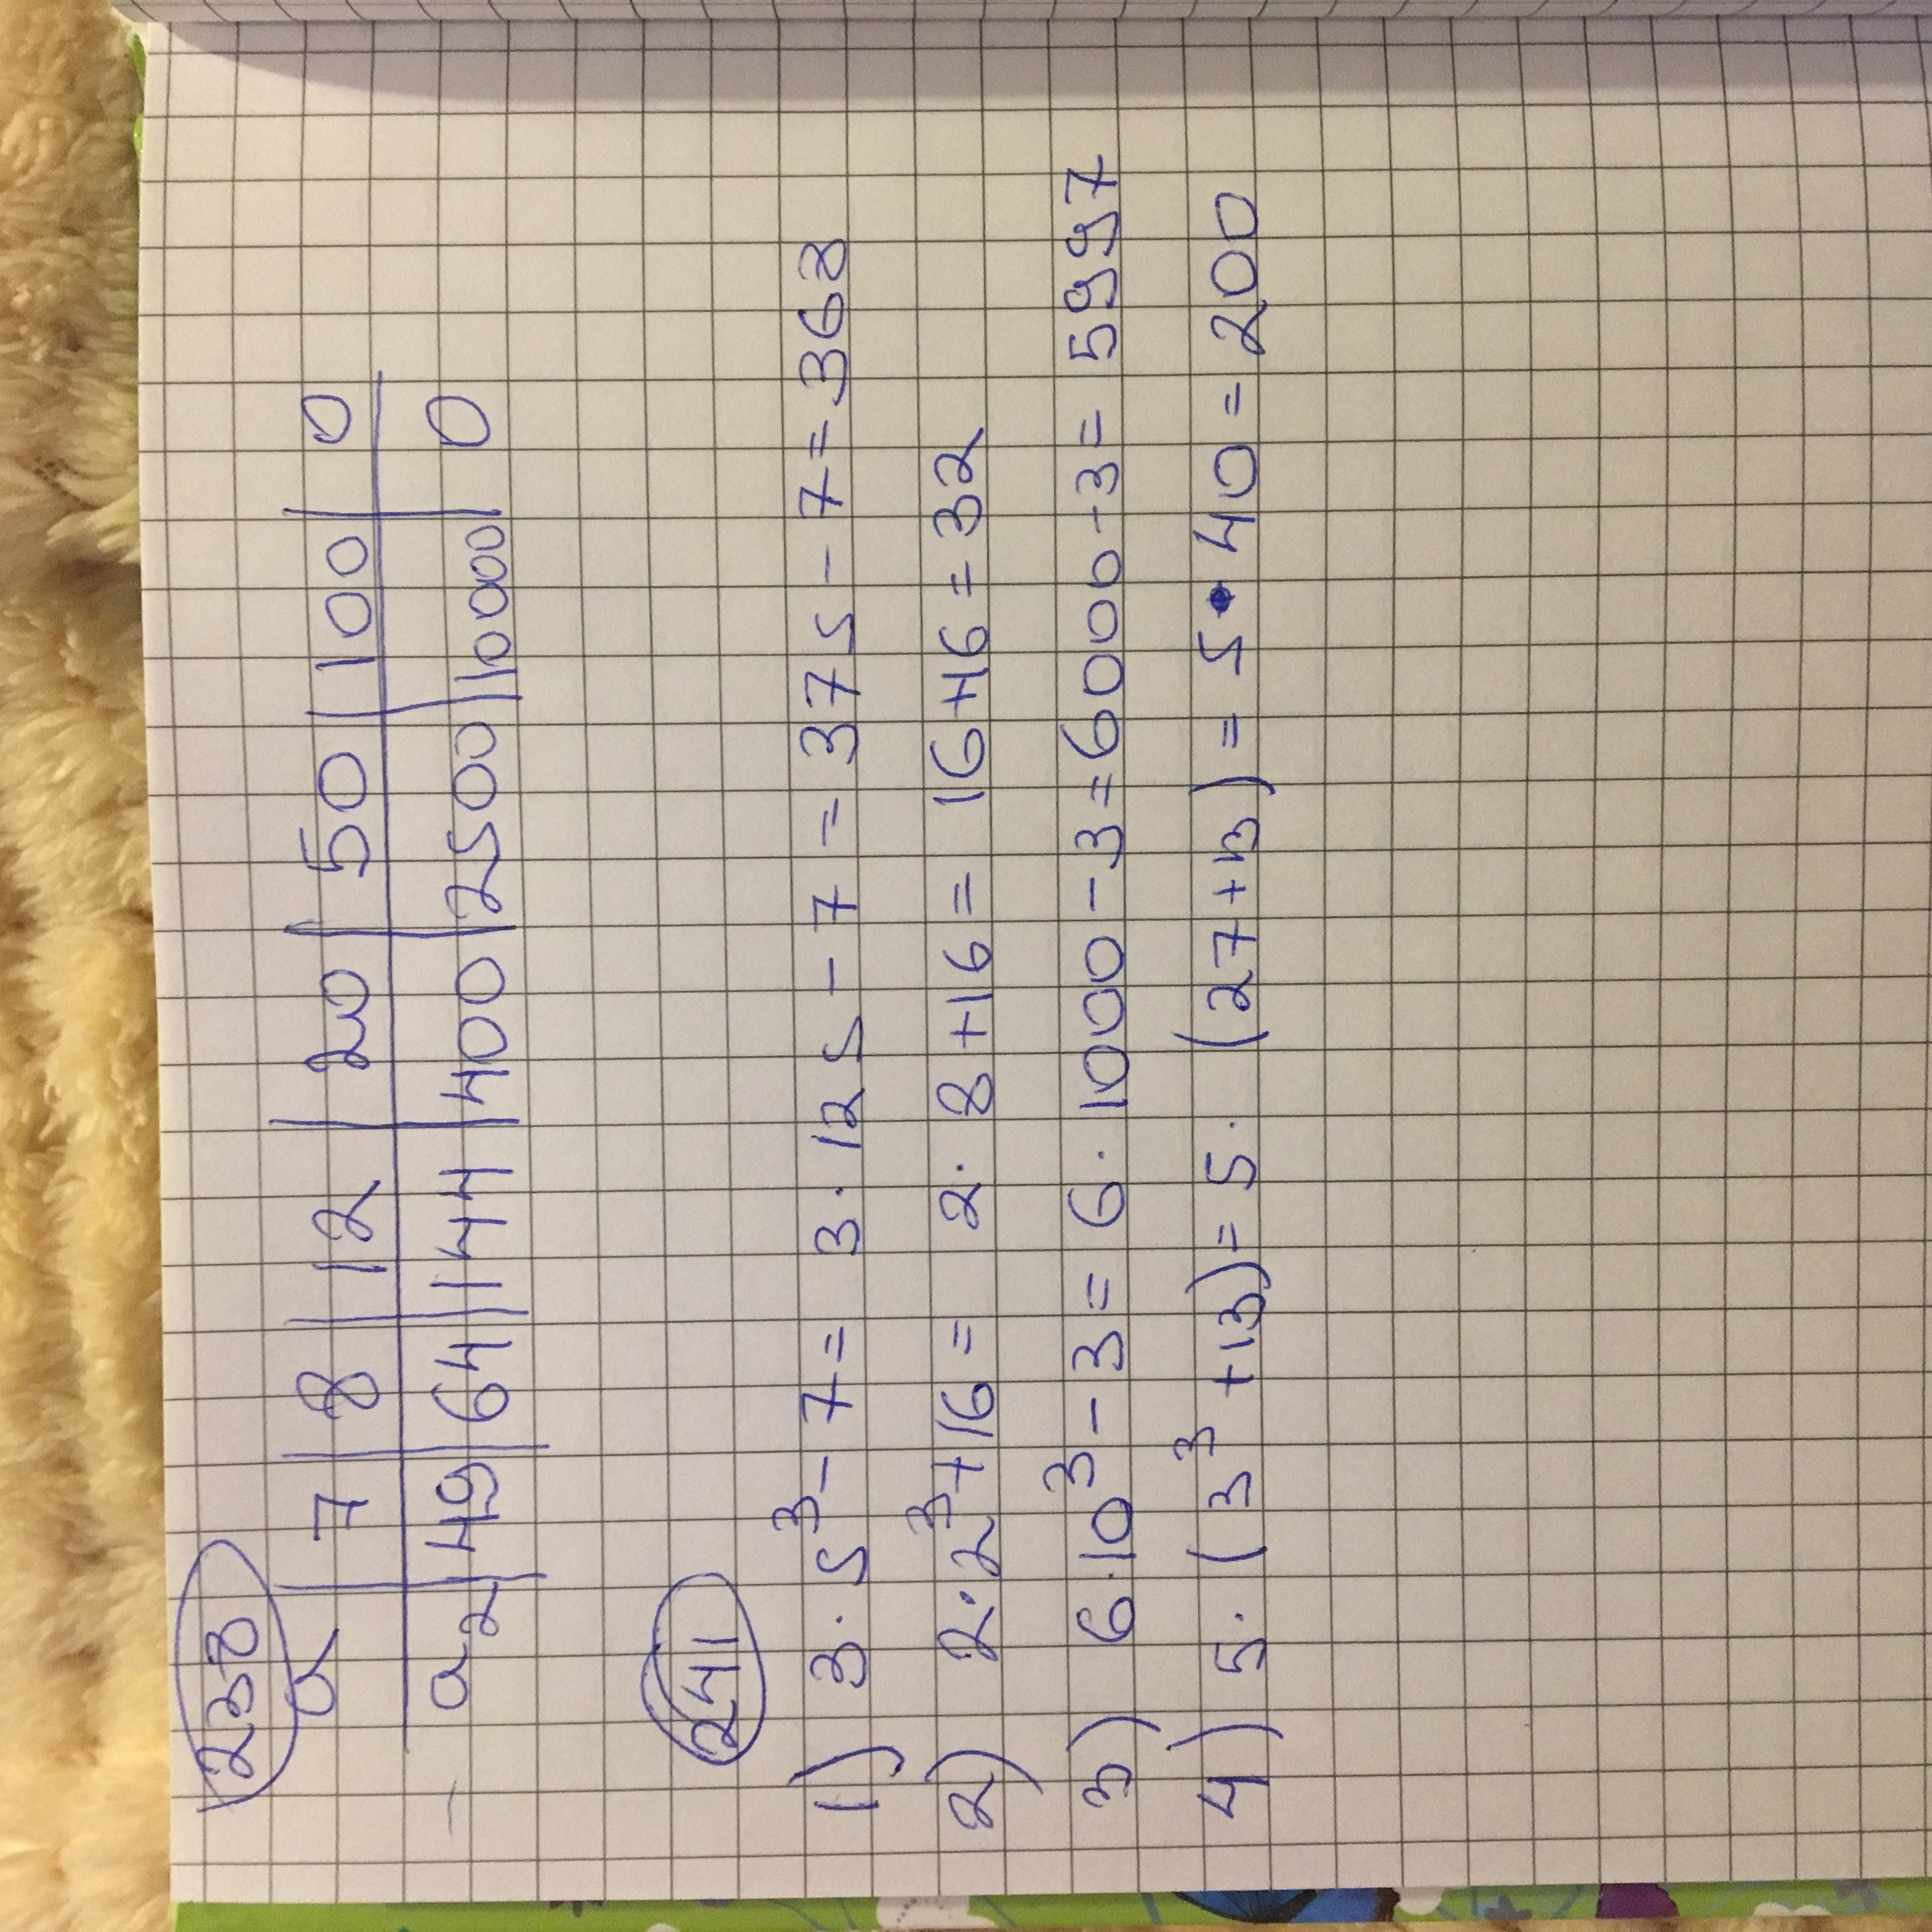 238
a | 7 | 8 | 12 | 20 | 50 | 100 | 0
a² | 49 | 64 | 144 | 400 | 2500 | 10000 | 0
241
1) 3 · 5³ - 7 = 3 · 125 - 7 = 375 - 7 = 368
2) 2 · 2³ + 16 = 2 · 8 + 16 = 16 + 16 = 32
3) 6 · 10³ - 3 = 6 · 1000 - 3 = 6000 - 3 = 5997
4) 5 · (3³ + 13) = 5 · (27 + 13) = 5 · 40 = 200